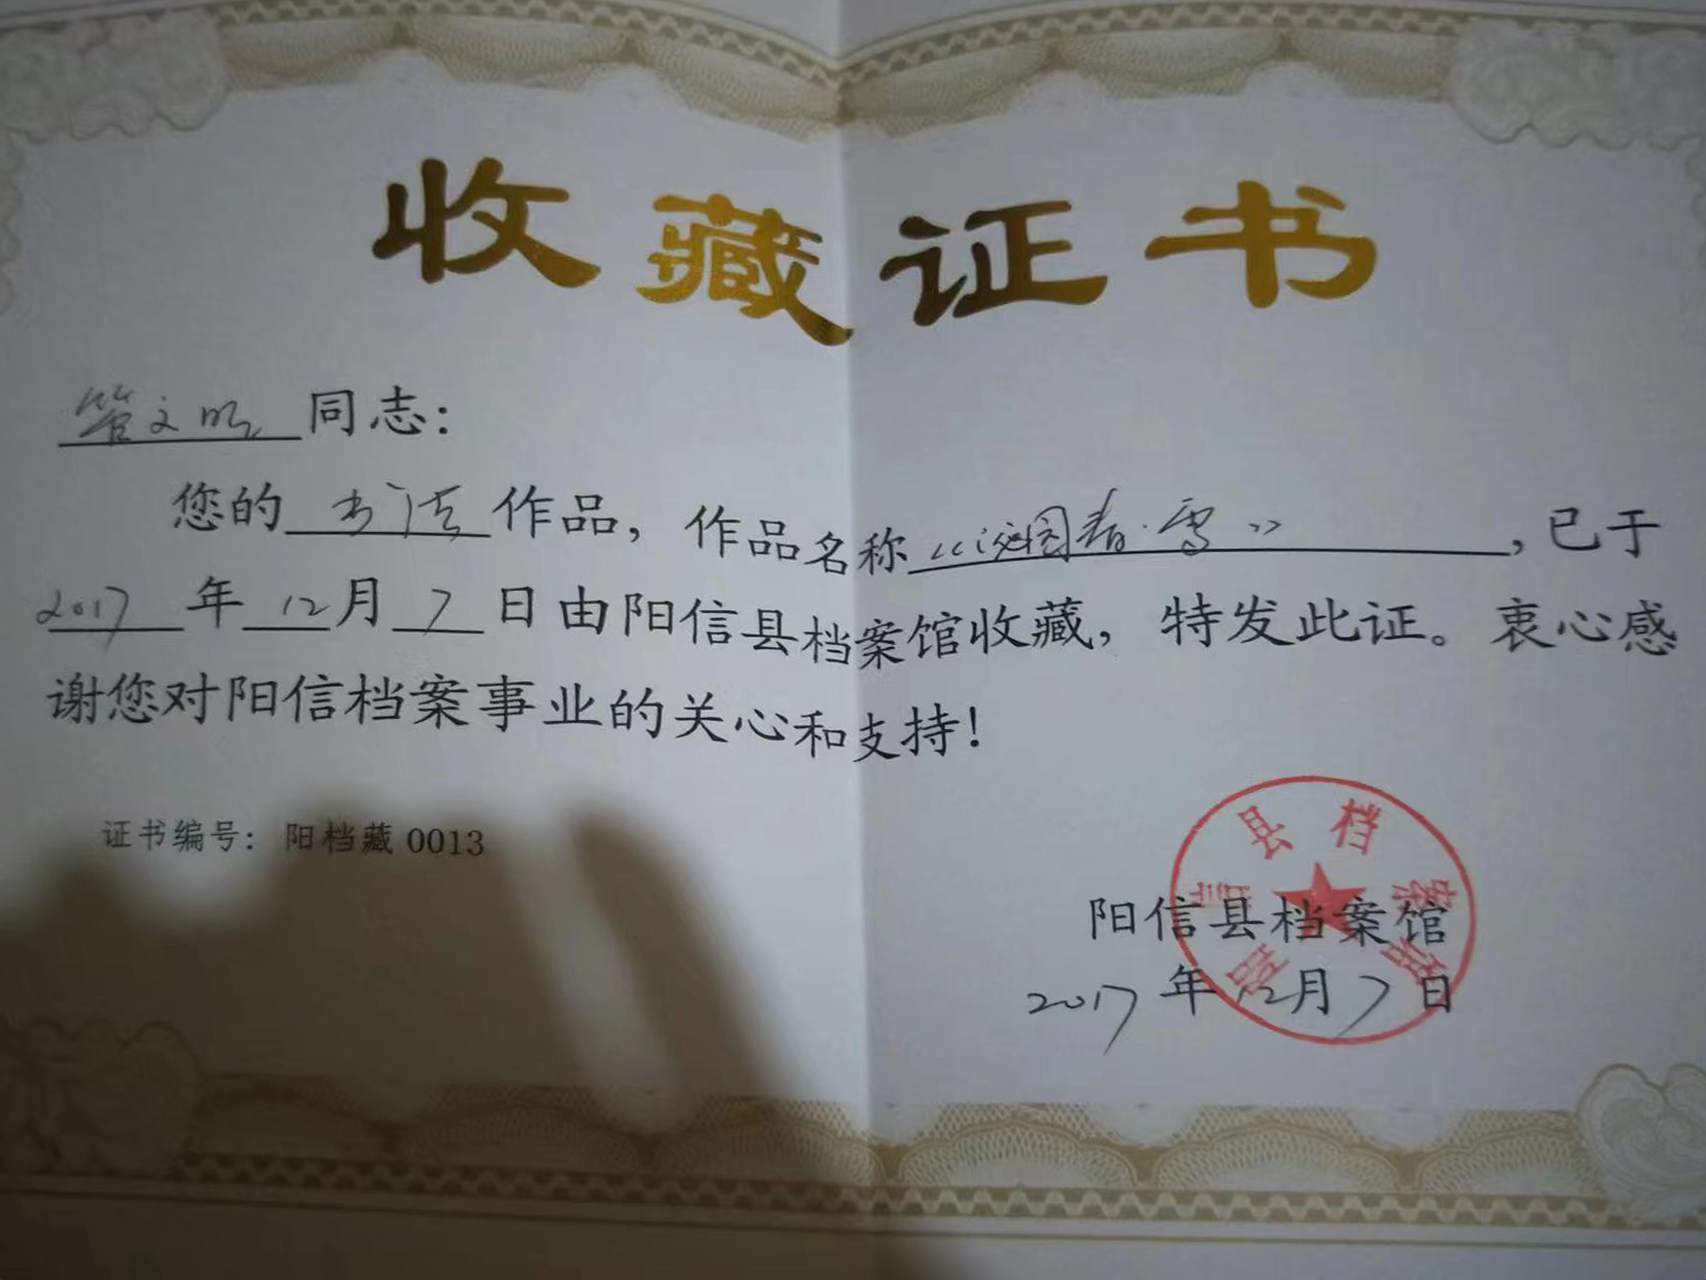 收藏证书
管文明同志：
您的书法作品，作品名称《沁园春·雪》，已于
2017年12月7日由阳信县档案馆收藏，特发此证。衷心感
谢您对阳信档案事业的关心和支持！
证书编号：阳档藏 0013
阳信县档案馆
阳信县档案馆
2017年12月7日